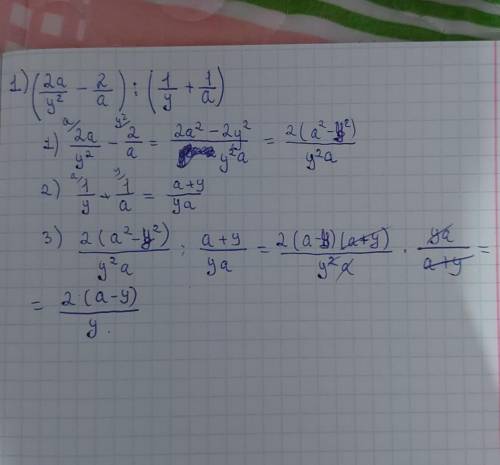 1) (2a/y² − 2/a) : (1/y + 1/a)
1) a/ 2a/y² − y²/ 2/a = (2a² − 2y²)/(y²a) = 2(a² − y²)/(y²a)
2) a/ 1/y + y/ 1/a = (a+y)/(ya)
3) 2(a² − y²)/(y²a) : (a+y)/(ya) = 2(a−y)(a+y)/(y²a) · ya/(a+y) =
= 2(a−y)/y.